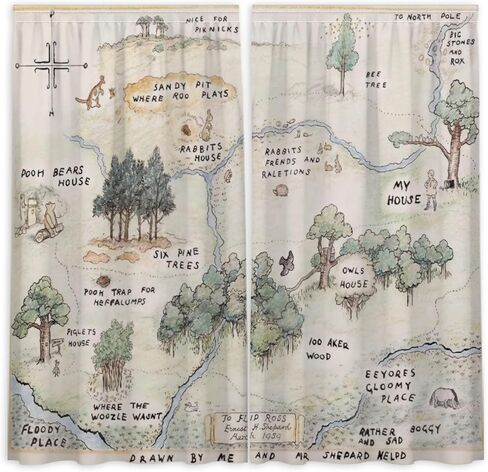 P
NICE FOR
PIKNICKS
TO NORTH POLE
BIG
STONES
AND
ROX
BEE
TREE
SANDY PIT
WHERE ROO PLAYS
RABBITS
HOUSE
RABBITS
FRENDS AND
RALETIONS
POOH BEARS
HOUSE
MY
HOUSE
SIX PINE
TREES
OWLS
HOUSE
POOH TRAP FOR
HEFFALUMPS
PIGLETS
HOUSE
100 AKER
WOOD
EEYORES
GLOOMY
PLACE
WHERE THE
WOOZLE WASNT
FLOODY
PLACE
TO FLIP ROSS
Ernest H. Shepard
March 1959
RATHER BOGGY
AND SAD
DRAWN BY ME AND MR SHEPARD HELPD